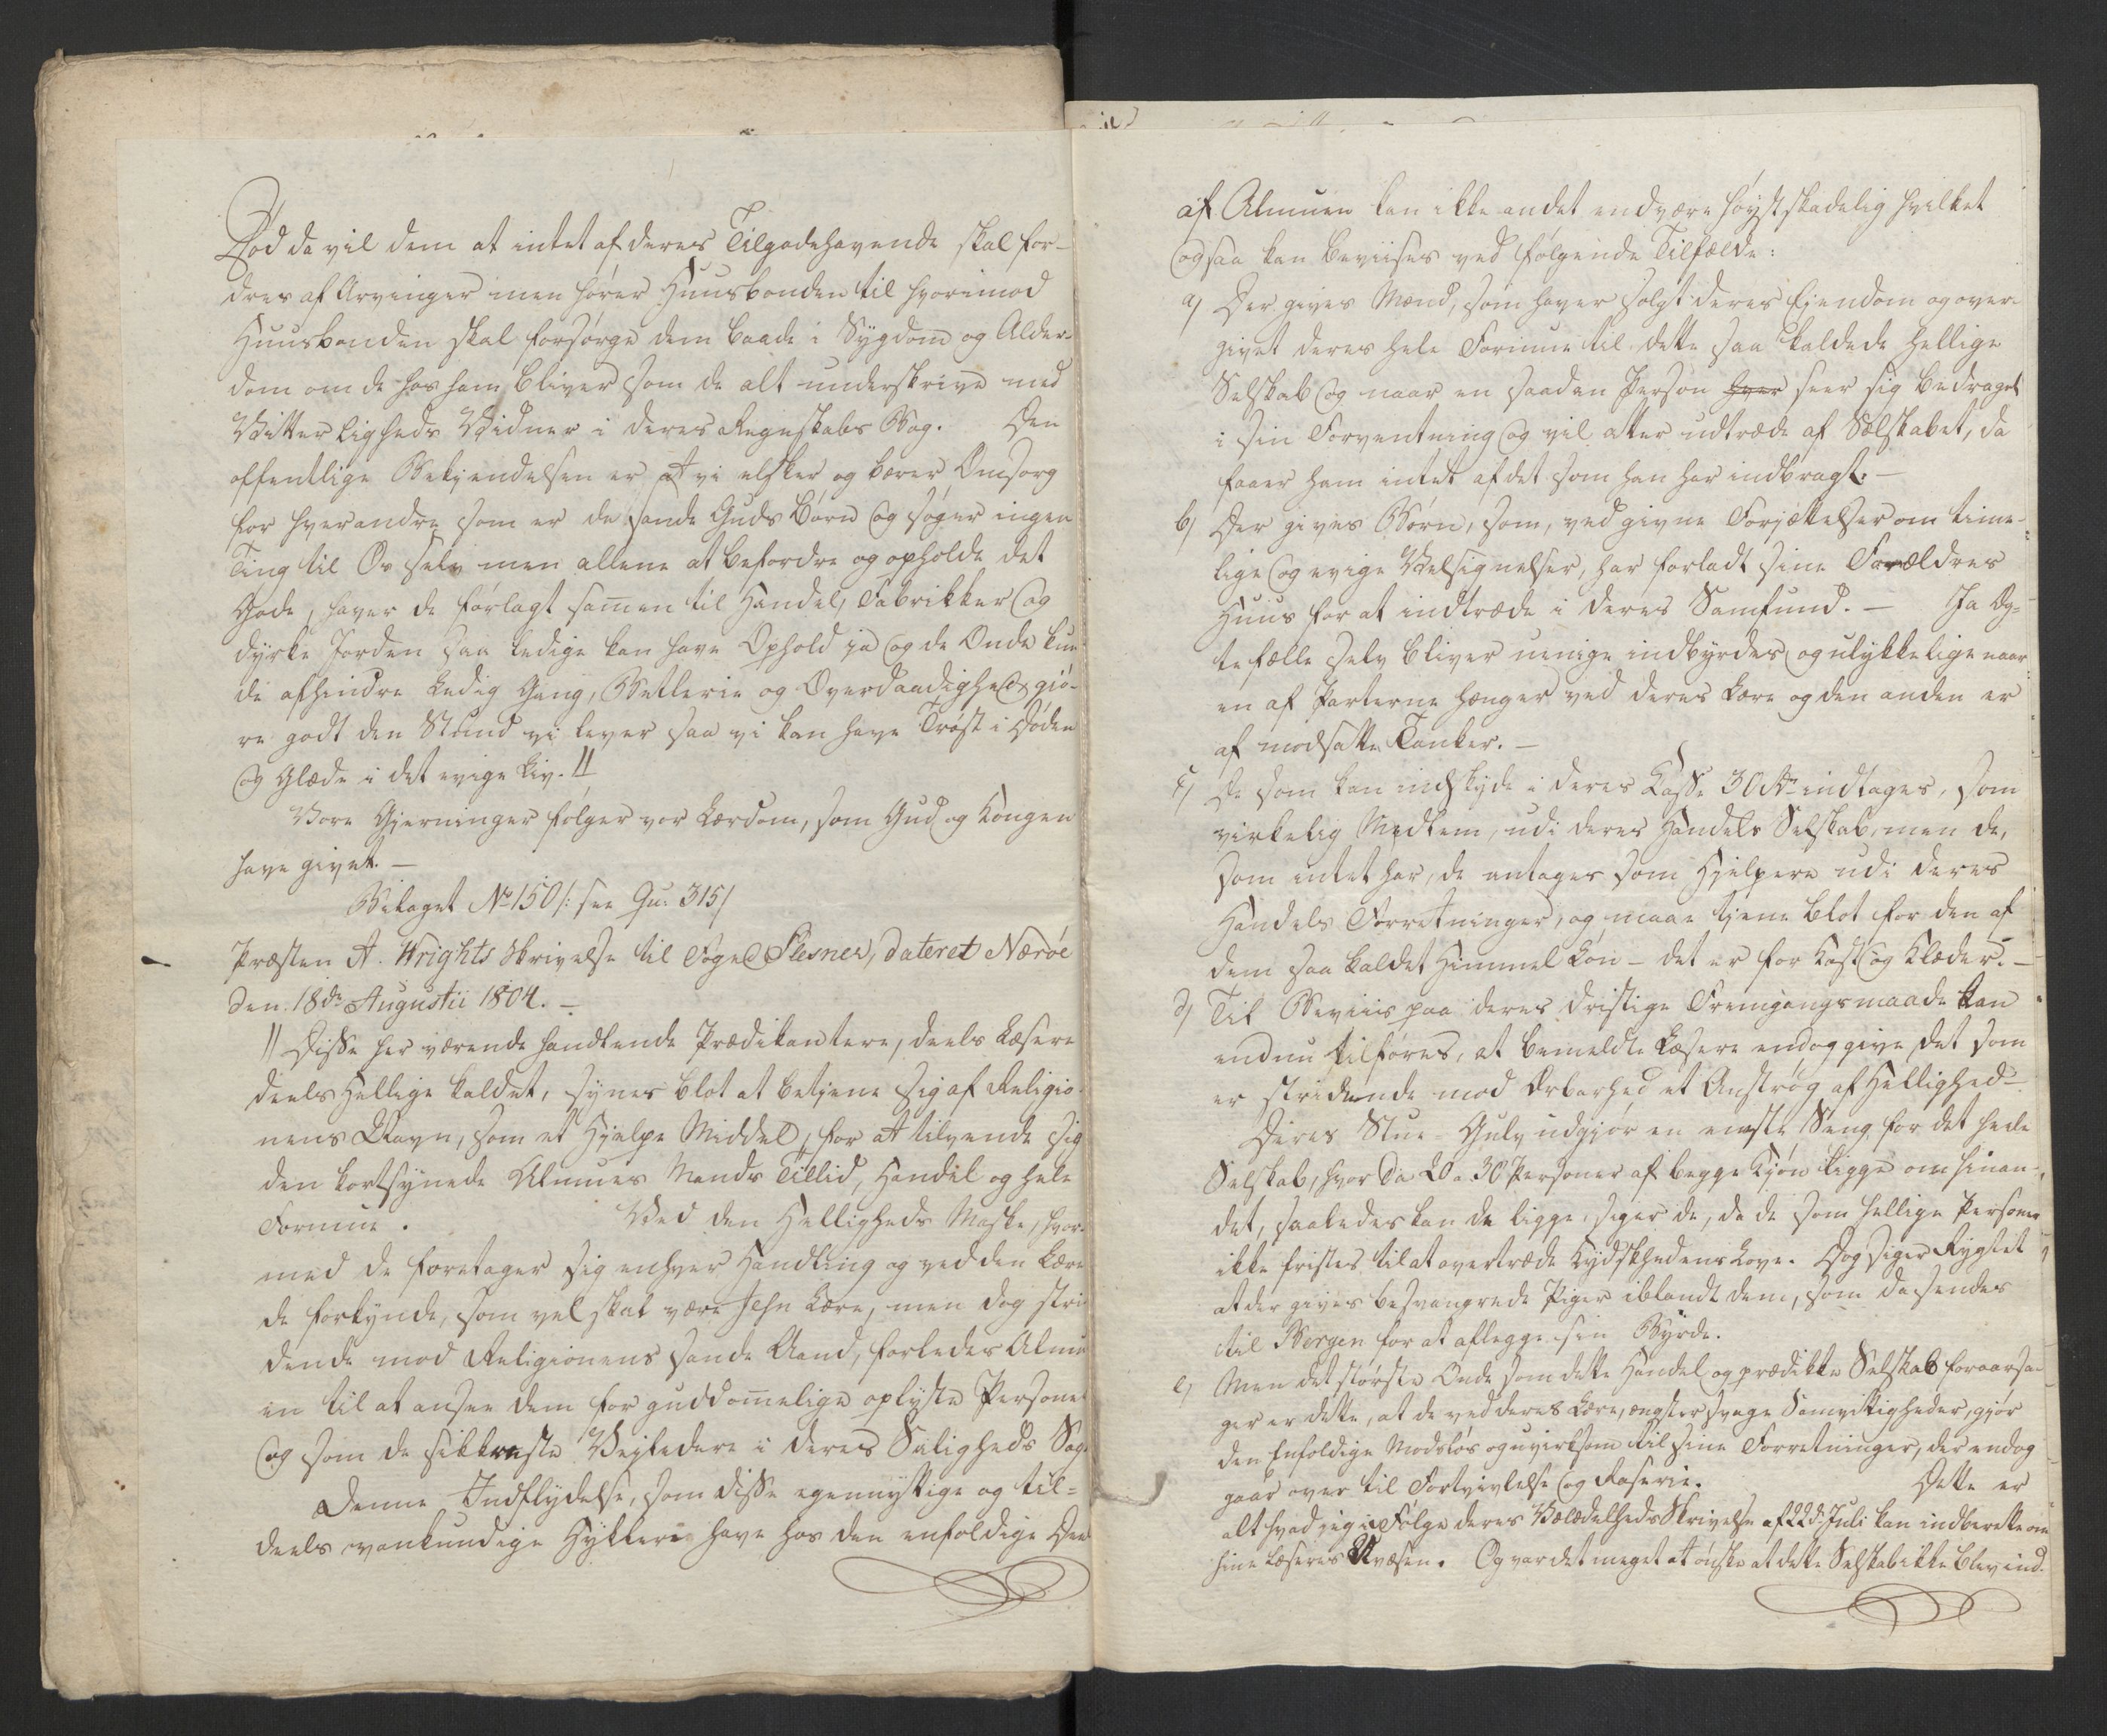 Død da vil dem at intet af deres Tilgodehavende skal for-
dres af Arvinger men hører Huusbonden til hvorimod
Huusbonden skal forsørge dem baade i Sygdom og Alder-
dom om de hos ham bliver som de alt underskrive med
Vitterligheds Vidner i deres Regnskabs Bog. Den
offentlige Bekjendelsen er at vi elsker og bærer Omsorg
for hverandre som er de sande Guds Børn og søger ingen
Ting til Os selv men allene at befordre og opholde det
Gode, haver de forlagt samen til Handel, Fabrikker og
dyrke Jorden saa ledige kan have Ophold ja og de Onde kun
de afhindre Ledig Gang, Betlerie og Overdaadighed giø-
re godt den Stund vi lever saa vi kan have Trøst i Døden
og Glæde i det evige Liv. //
Vore Gjerninger følger vor Lærdom, som Gud og Kongen
have givet. —
Bilaget No 150 /: see Qu: 315/
Præsten A. Wrights Skrivelse til Foged Flesner, dateret Nærøe
den 18de Augustii 1804. —
// Disse her værende handlende Prædikantere, deels Læsere
deels Hellige kaldet, synes blot at betjene sig af Religio-
nens Navn, som et Hjelpe Middel, for at tilvende sig
den kortsynede Almues Mands Tillid, Handel og hele
Formue. Ved den Helligheds Maske, hvor-
med de foretager sig enhver Handling og ved den Lære
de forkynde, som vel skal være Jesu Lære, men dog stri
dende mod Religionens sande Aand, forledes Almu
en til at ansee dem for guddomelige oplyste Persone
og som de sikkreste Vejledere i deres Saligheds Sag
Denne Indflydelse, som disse egennyttige og til-
deels vankundige Hyklere have hos den enfoldige Deel
af Almuen kan ikke andet end være høyst skadelig hvilket
ogsaa kan beviises ved følgende Tilfælde:
a) Der gives Mænd, som haver solgt deres Eiendom og over-
givet deres hele Formue til dette saa kaldede hellige
Selskab og naar en saadan Person hver seer sig bedraget
i sin Forventning og vil atter udtræde af Selskabet, da
faaer ham intet af det som han har indbragt. —
b) Der gives Børn, som, ved givne Forjættelser om time-
lige og evige Velsignelser, har forladt sine Forældres
Huus for at indtræde i deres Samfund. — Ja Eg-
tefælle selv bliver uenige indbyrdes og ulykkelige naar
en af Parterne hænger ved deres Lære og den anden er
af modsatte Tanker. —
c) De som kan indskyde i deres Casse 30 Rd indtages, som
virkelig Medlem, udi deres Handels Selskab, men de,
som intet har, de antages som Hjelpere udi deres
Handels Forretninger, og maae tjene blot for den af
dem saa kaldet Himmel Løn – det er for Kost og Klæder. —
d) Til Beviis paa deres dristige Fremgangsmaade kan
endnu tilføres, at bemeldte Læsere endog give det som
er stridende mod Ærbarhed et Anstrøg af Hellighed –
Deres Stue-Gulv udgjør en eneste Seng for det hele
Selskab, hvor da 20 a 30 Personer af begge Kjøn ligge om hinan-
det, saaledes kan de ligge, siger de, da de som hellige Personer
ikke fristes til at overtræde Kydskhedens Love. Dog siger Rygtet
at der gives besvangrede Piger iblandt dem, som da sendes
til Bergen for at aflegge sin Byrde.
e) Men det største Onde som dette Handel og prædikke Selskab foraarsa-
ger er dette, at de ved deres Lære, ængster svage Samvittigheder, gjør
den Enfoldige Modsløs og uvirksom til sine Forretninger, der endog
gaar over til Fortvivlelse og Raserie. Dette er
alt hvad jeg i Følge deres Velædelheds Skrivelse af 22de Juli kan indberette om
hine Læseres Uvæsen. Og var det meget at ønske at dette Selskab ikke blev ind-